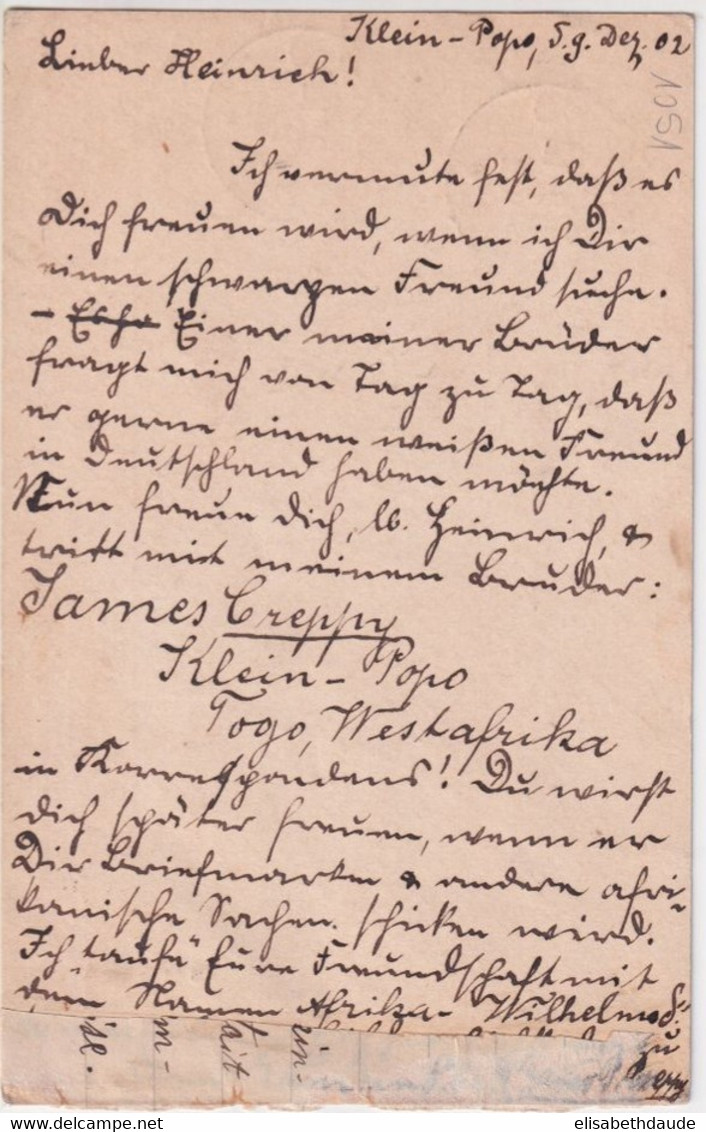 Klein-Popo, d. 9. Dez. 02
Lieber Heinrich!
1051
Ich vermute fest, daß es
Dich freuen wird, wenn ich Dir
einen schwarzen Freund suche.
- Einer meiner Brüder
fragt mich von Tag zu Tag, daß
er gerne einen weißen Freund
in Deutschland haben möchte.
Nun freue dich, lb. Heinrich, &
tritt mit meinem Bruder:
James Creppy
Klein-Popo
Togo, Westafrika
in Korrespondens! Du wirst
dich später freuen, wenn er
Dir Briefmarken & andere afri-
kanische Sachen schicken wird.
Ich "taufe" Eure Freundschaft mit
dem Namen Afrika-
zu
elisabethdaude